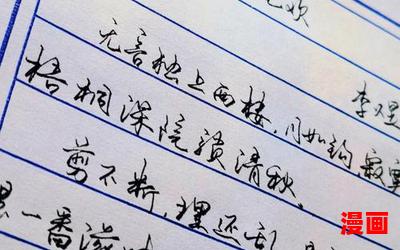 欢
无言独上西楼，月如钩 寂寞
李煜
梧桐深院锁清秋。
剪不断，理还乱
一番滋味
漫画